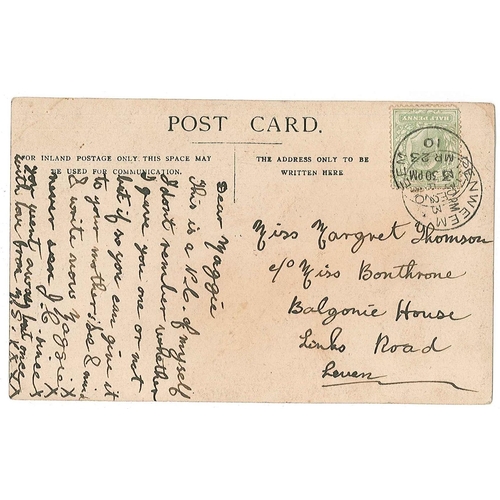 POST CARD.
FOR INLAND POSTAGE ONLY THIS SPACE MAY
BE USED FOR COMMUNICATION.
THE ADDRESS ONLY TO BE
WRITTEN HERE
HALF PENNY
PITTENWEEM
3.30PM
MR 23
10
Dear Maggie
This is a P.C. of myself
I dont remember whether
I gave you one or not
but if so you can give it
to your mother, be &
& write now Maggie X
I never see J. C. since X
you went away but once X
with love from M. S. XXX
Miss Margret Thomson
c/o Miss Bonthrone
Balgonie House
Links Road
Leven